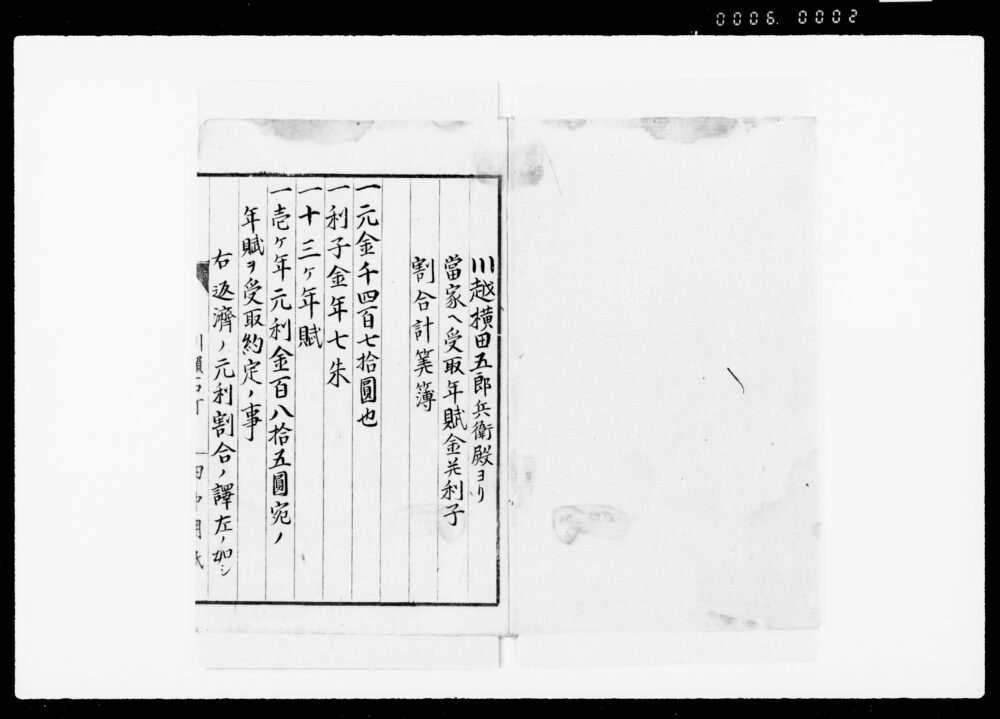 0006. 0002
川越横田五郎兵衛殿ヨリ
當家ヘ受取年賦金并利子
割合計算簿
一元金千四百七拾圓也
一利子金年七朱
一十三ヶ年賦
一壱ヶ年元利金百八拾五圓宛ノ
年賦ヲ受取約定ノ事
右返濟ノ元利割合ノ譯左ノ如シ